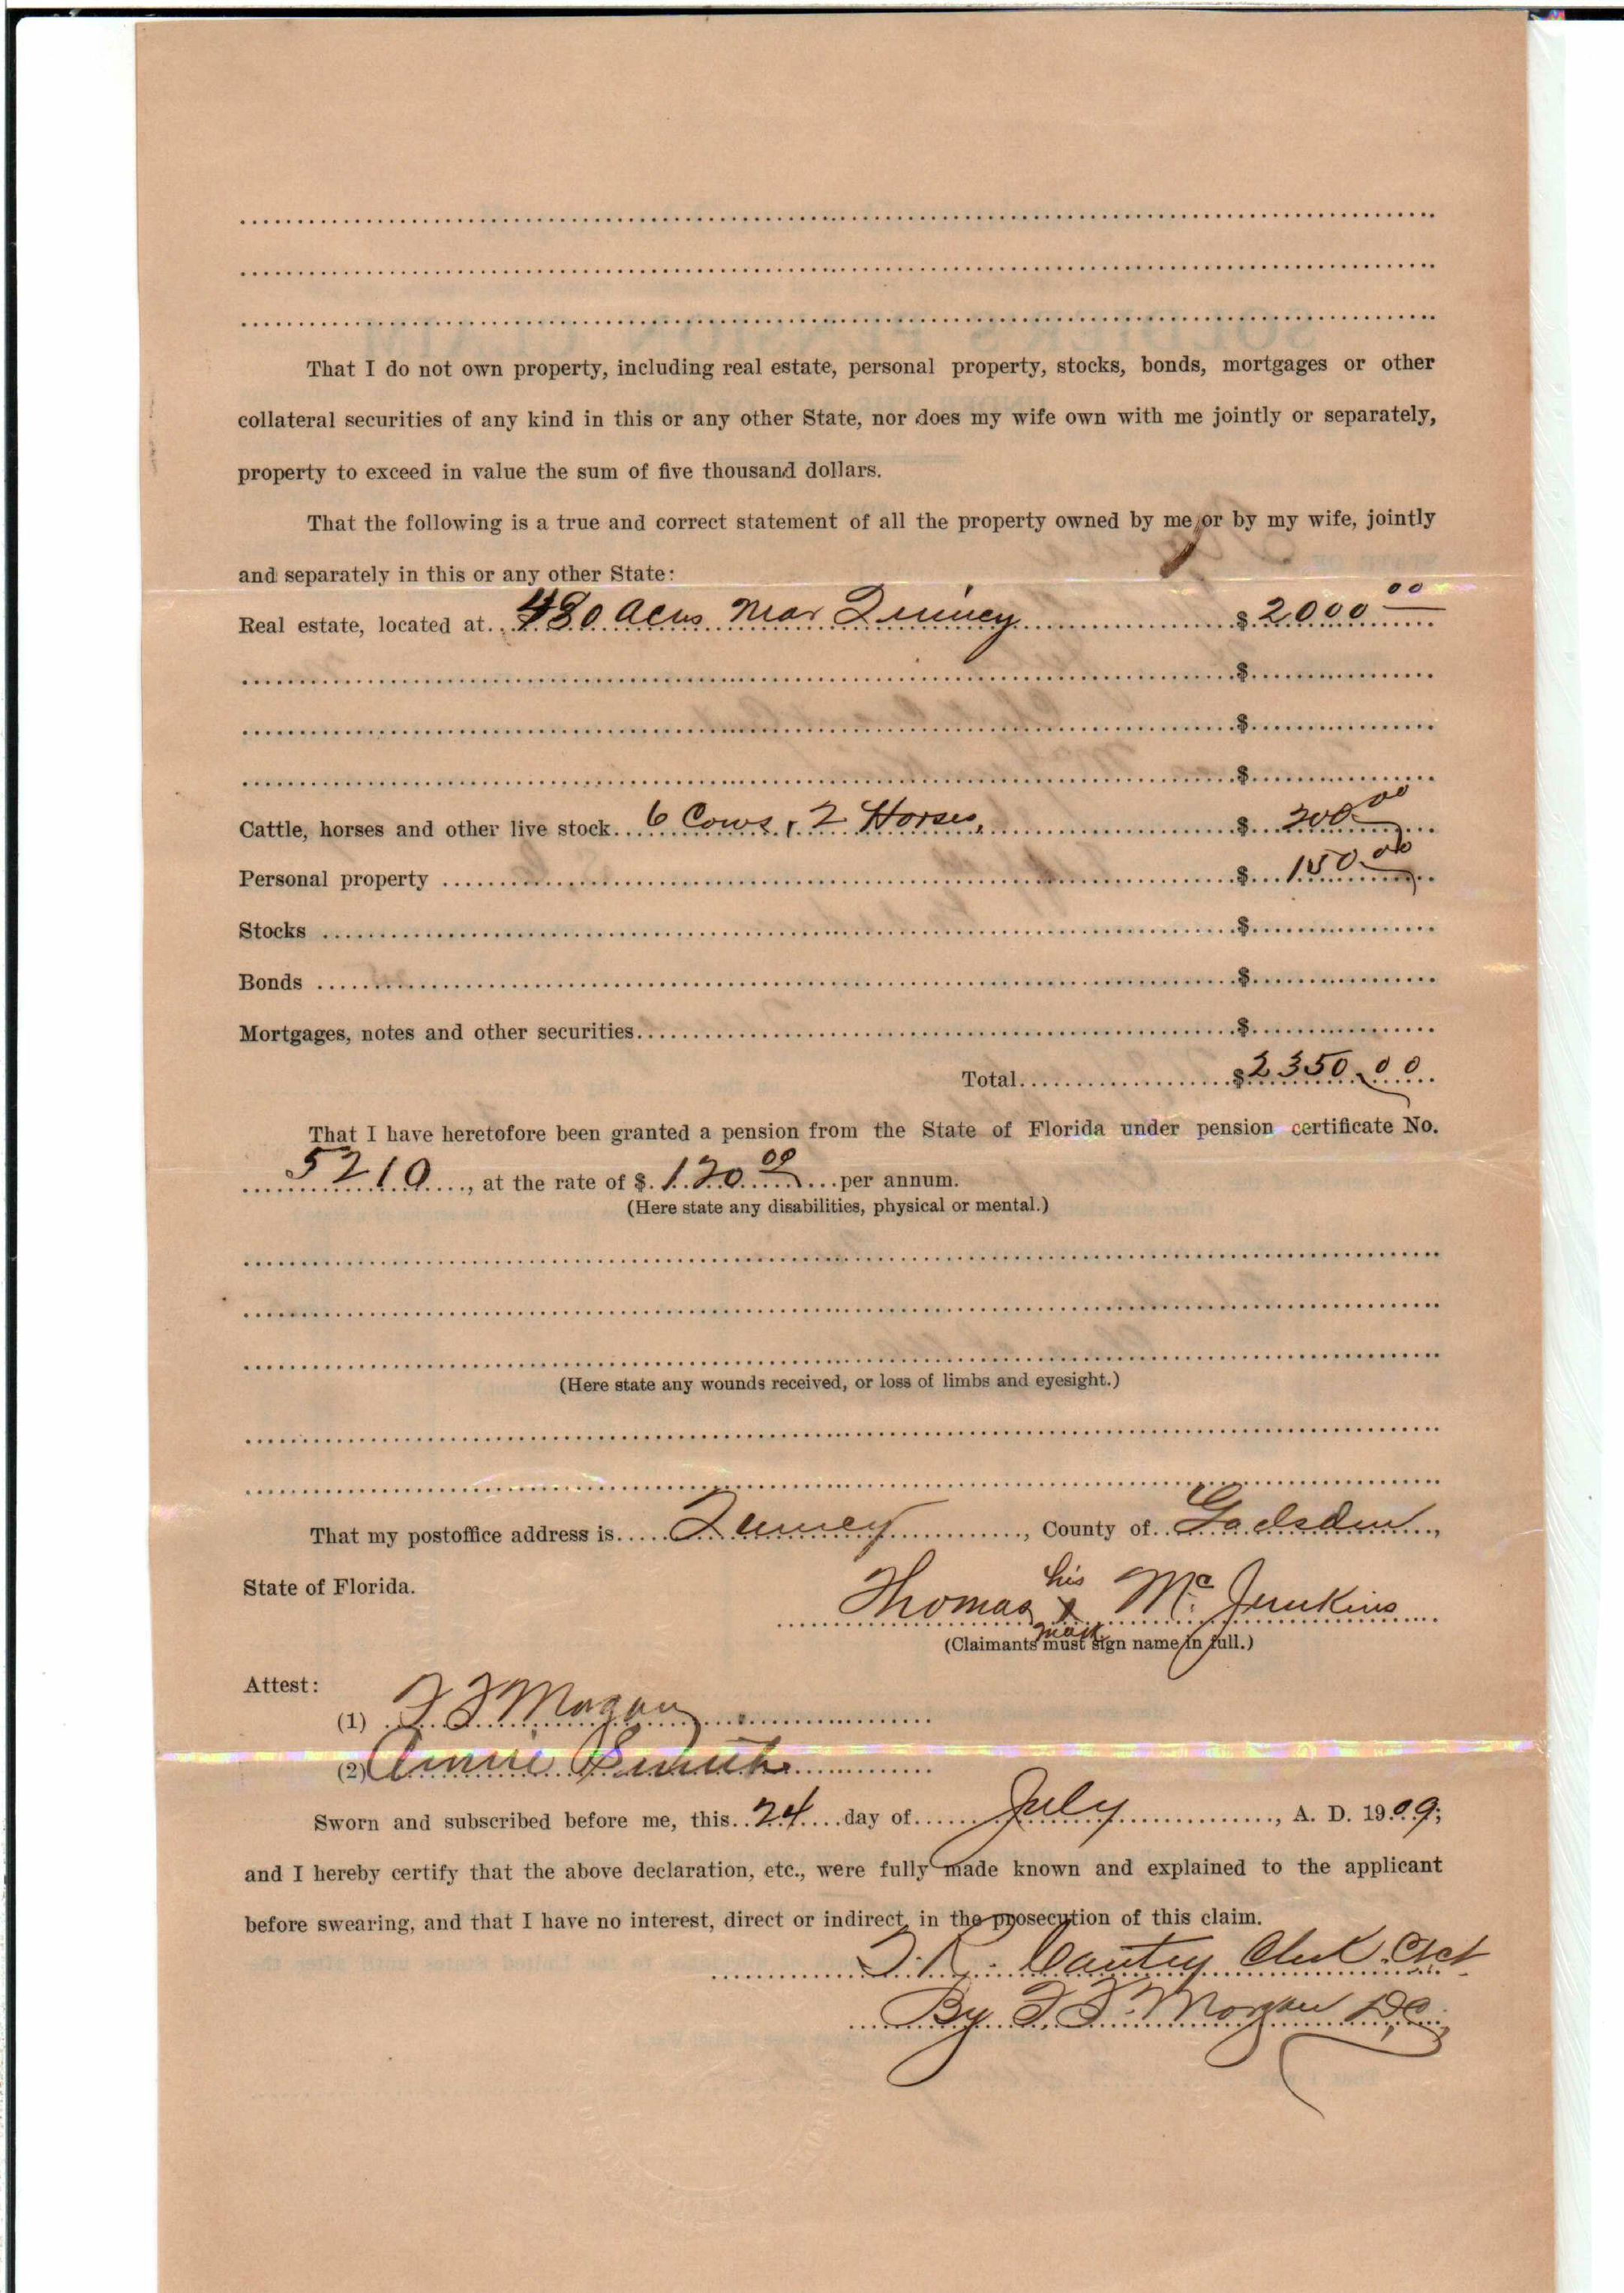 That I do not own property, including real estate, personal property, stocks, bonds, mortgages or other
collateral securities of any kind in this or any other State, nor does my wife own with me jointly or separately,
property to exceed in value the sum of five thousand dollars.
That the following is a true and correct statement of all the property owned by me or by my wife, jointly
and separately in this or any other State:
Real estate, located at 480 Acres Near Quincy $2000 00
$
$
$
Cattle, horses and other live stock 6 Cows, 2 Horses, $ 200 00
Personal property $ 150.00
Stocks $
Bonds $
Mortgages, notes and other securities $
Total $2350.00
That I have heretofore been granted a pension from the State of Florida under pension certificate No.
5210, at the rate of $ 120 00 per annum.
(Here state any disabilities, physical or mental.)
(Here state any wounds received, or loss of limbs and eyesight.)
That my postoffice address is Quincy, County of Gadsden,
State of Florida.
his
Thomas x Mc Jenkins
mark
(Claimants must sign name in full.)
Attest:
(1) F F Morgan
(2) Annie Smith
Sworn and subscribed before me, this 24 day of July, A. D. 1909;
and I hereby certify that the above declaration, etc., were fully made known and explained to the applicant
before swearing, and that I have no interest, direct or indirect, in the prosecution of this claim.
Cantey Clerk
By F. F. Morgan DC